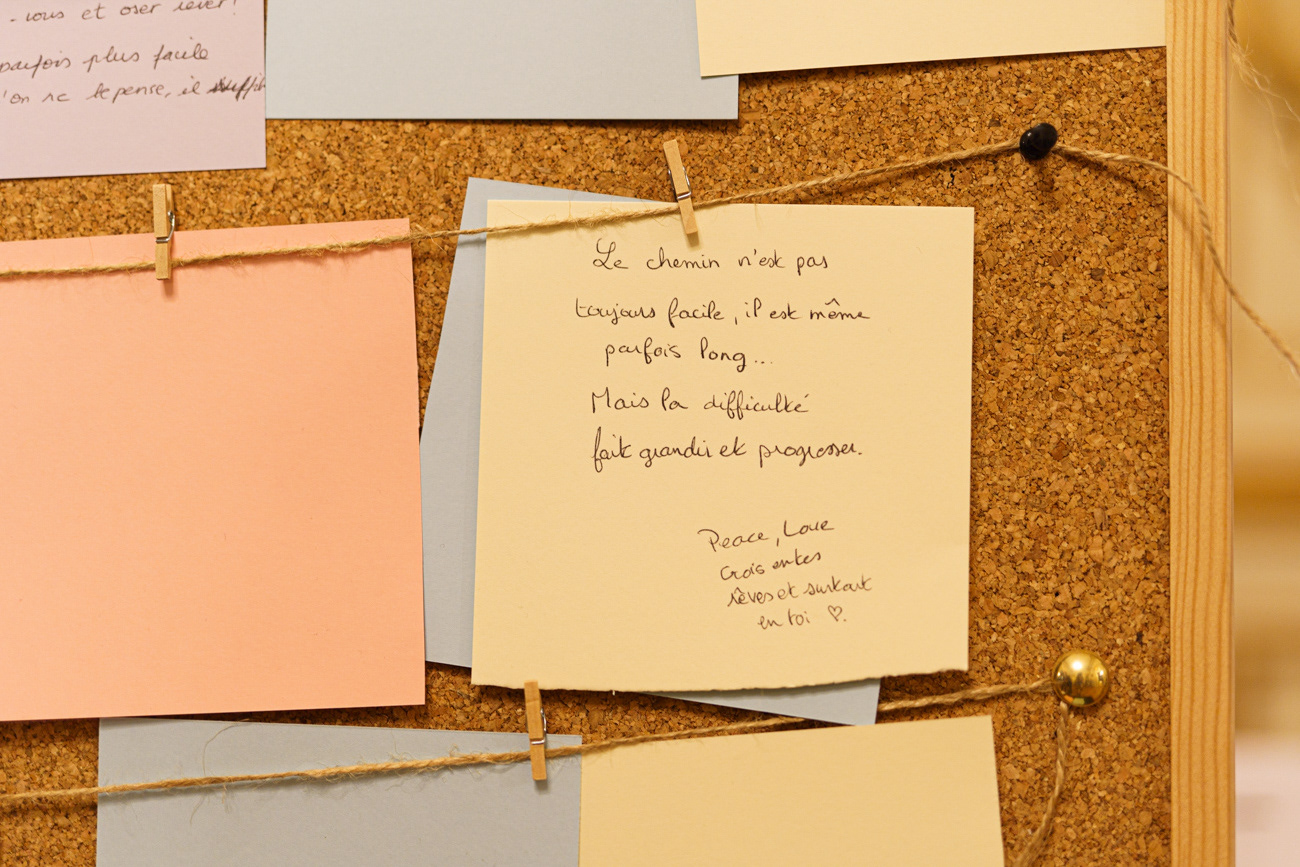 -vous et oser rêver!
parfois plus facile
'on ne le pense, il
Le chemin n'est pas
toujours facile, il est même
parfois long...
Mais la difficulté
fait grandir et progresser.
Peace, Love
Crois en tes
rêves et surtout
en toi ♡.